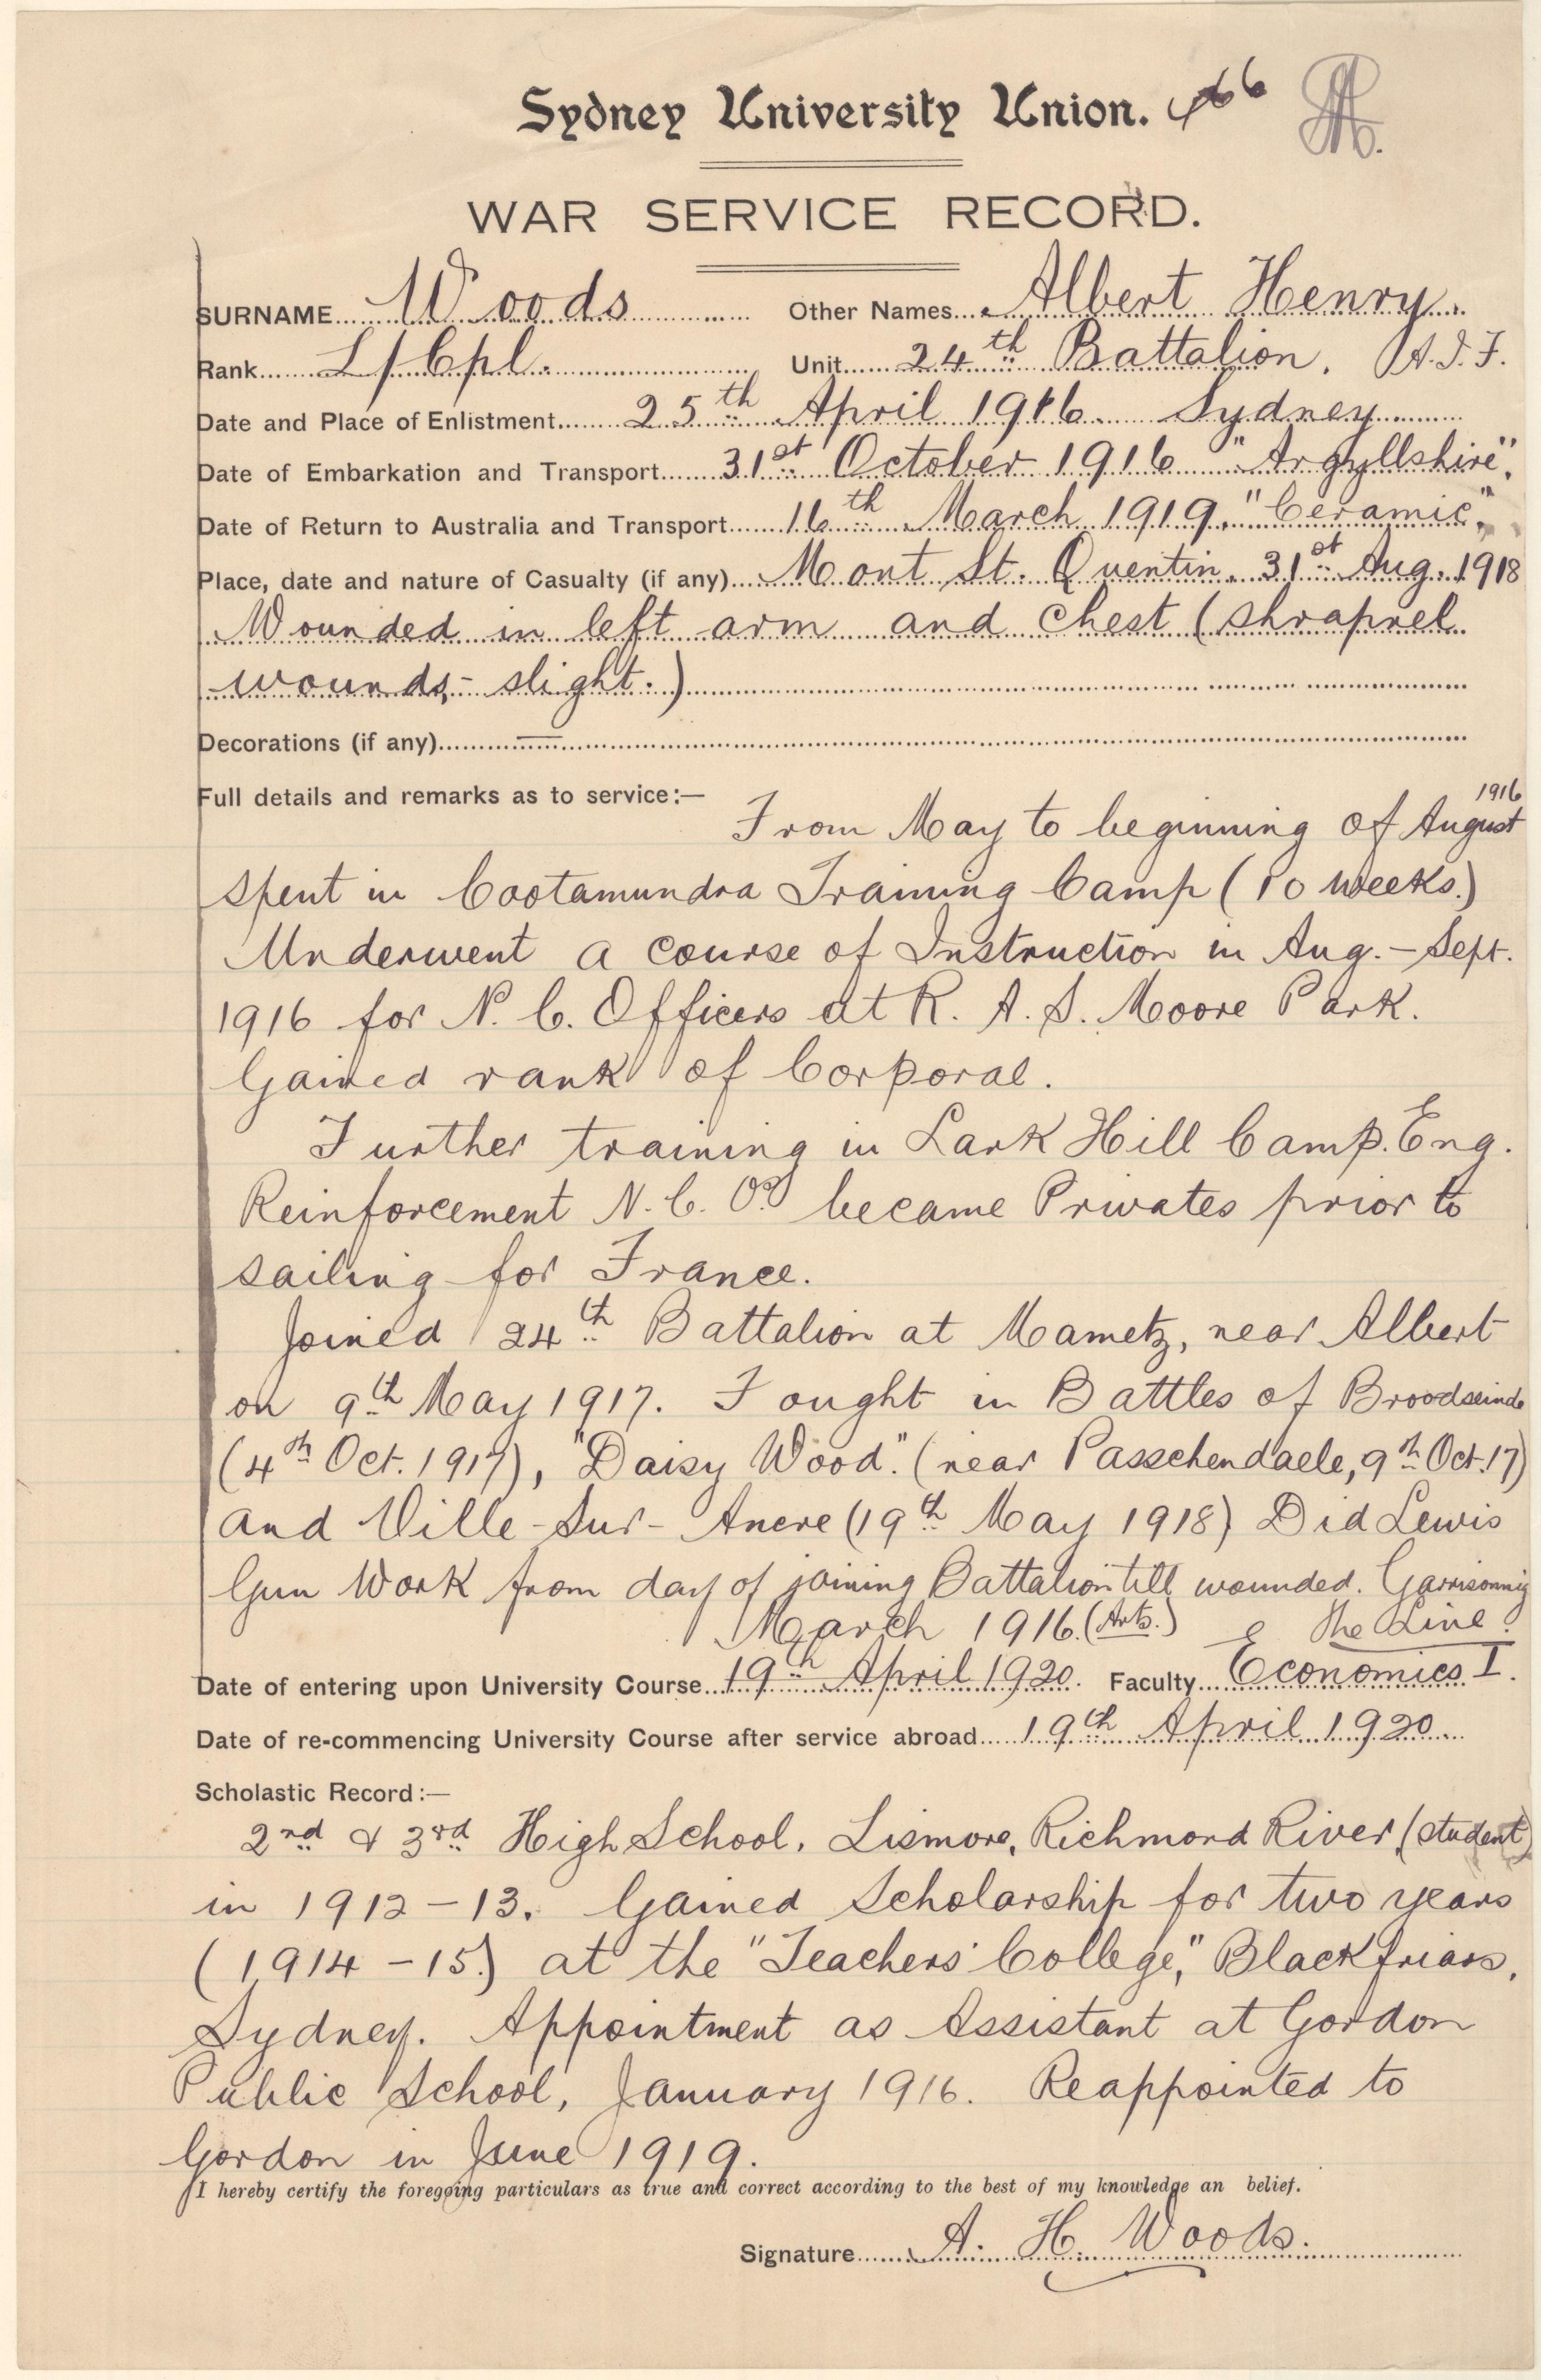 Sydney University Union. 466
WAR SERVICE RECORD.
SURNAME Woods Other Names Albert Henry.
Rank L/Cpl. Unit 24th Battalion. A.I.F.
Date and Place of Enlistment 25th April 1916. Sydney
Date of Embarkation and Transport 31st October 1916 "Argyllshire".
Date of Return to Australia and Transport 16th March 1919. "Ceramic".
Place, date and nature of Casualty (if any) Mont St. Quentin. 31st Aug. 1918
Wounded in left arm and chest (shrapnel
wounds,- slight.)
Decorations (if any) —
Full details and remarks as to service:—
1916
From May to beginning of August
spent in Cootamundra Training Camp (10 weeks.)
Underwent a course of Instruction in Aug.-Sept.
1916 for N. C. Officers at R. A. S. Moore Park.
Gained rank of Corporal.
Further training in Lark Hill Camp. Eng.
Reinforcement N. C. Os became Privates prior to
sailing for France.
Joined 24th Battalion at Mametz, near Albert
on 9th May 1917. Fought in Battles of Broodseinde
(4th Oct. 1917), "Daisy Wood." (near Passchendaele, 9th Oct. 17)
and Ville-Sur-Ancre (19th May 1918) Did Lewis
Gun Work from day of joining Battalion till wounded. Garrisoning
March 1916. (Arts.) the Line.
Date of entering upon University Course 19th April 1920. Faculty Economics I.
Date of re-commencing University Course after service abroad 19th April 1920
Scholastic Record:—
2nd & 3rd High School, Lismore, Richmond River, (student)
in 1912-13. Gained Scholarship for two years
(1914-15.) at the "Teachers' College," Blackfriars,
Sydney. Appointment as Assistant at Gordon
Public School, January 1916. Reappointed to
Gordon in June 1919.
I hereby certify the foregoing particulars as true and correct according to the best of my knowledge an belief.
Signature A. H. Woods.